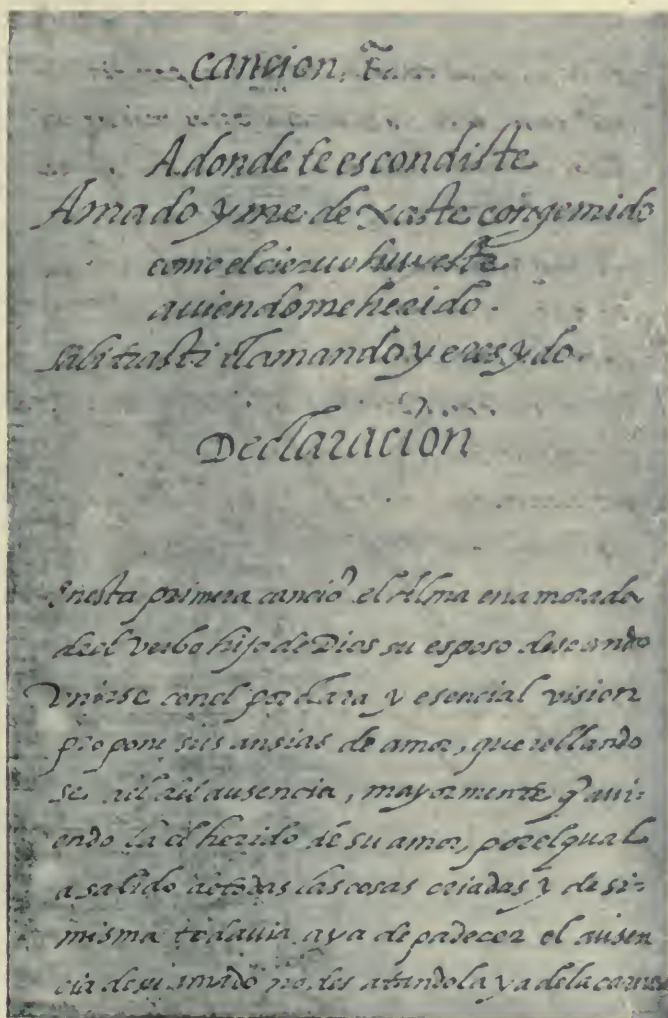 cancion. 
Adonde te escondiste
Amado y me dexaste con gemido
como el cieruo huyste
auiendome herido.
sali tras ti clamando y eras ydo.
Declaracion
Enesta primera canció el Alma enamorada
deel verbo hijo de Dios su esposo deseando
vnirse conel por clara y esencial vision
propone sus ansias de amor, querellando
se a el ausencia, mayormente q̃ aui-
endo la el herido de su amor, por el qual
a salido de todas las cosas criadas y de si
misma todauia aya de padecer el ausen
cia de su amado no desatandola ya dela carne